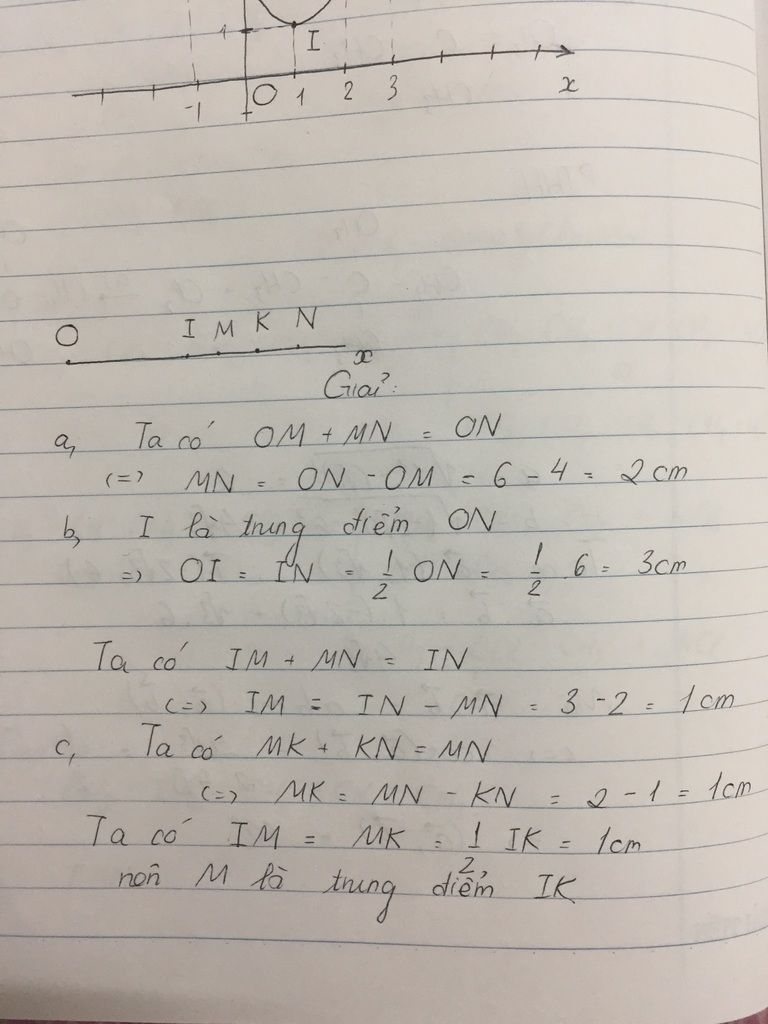 1
I
-1 O 1 2 3 x
O I M K N
x
Giải:
a, Ta có OM + MN = ON
(=) MN = ON - OM = 6 - 4 = 2 cm
b, I là trung điểm ON
=> OI = IN = 1/2 ON = 1/2 . 6 = 3cm
Ta có IM + MN = IN
(=> IM = IN - MN = 3 - 2 = 1 cm
c, Ta có MK + KN = MN
(=> MK = MN - KN = 2 - 1 = 1cm
Ta có IM = MK = 1/2 IK = 1cm
nên M là trung điểm IK